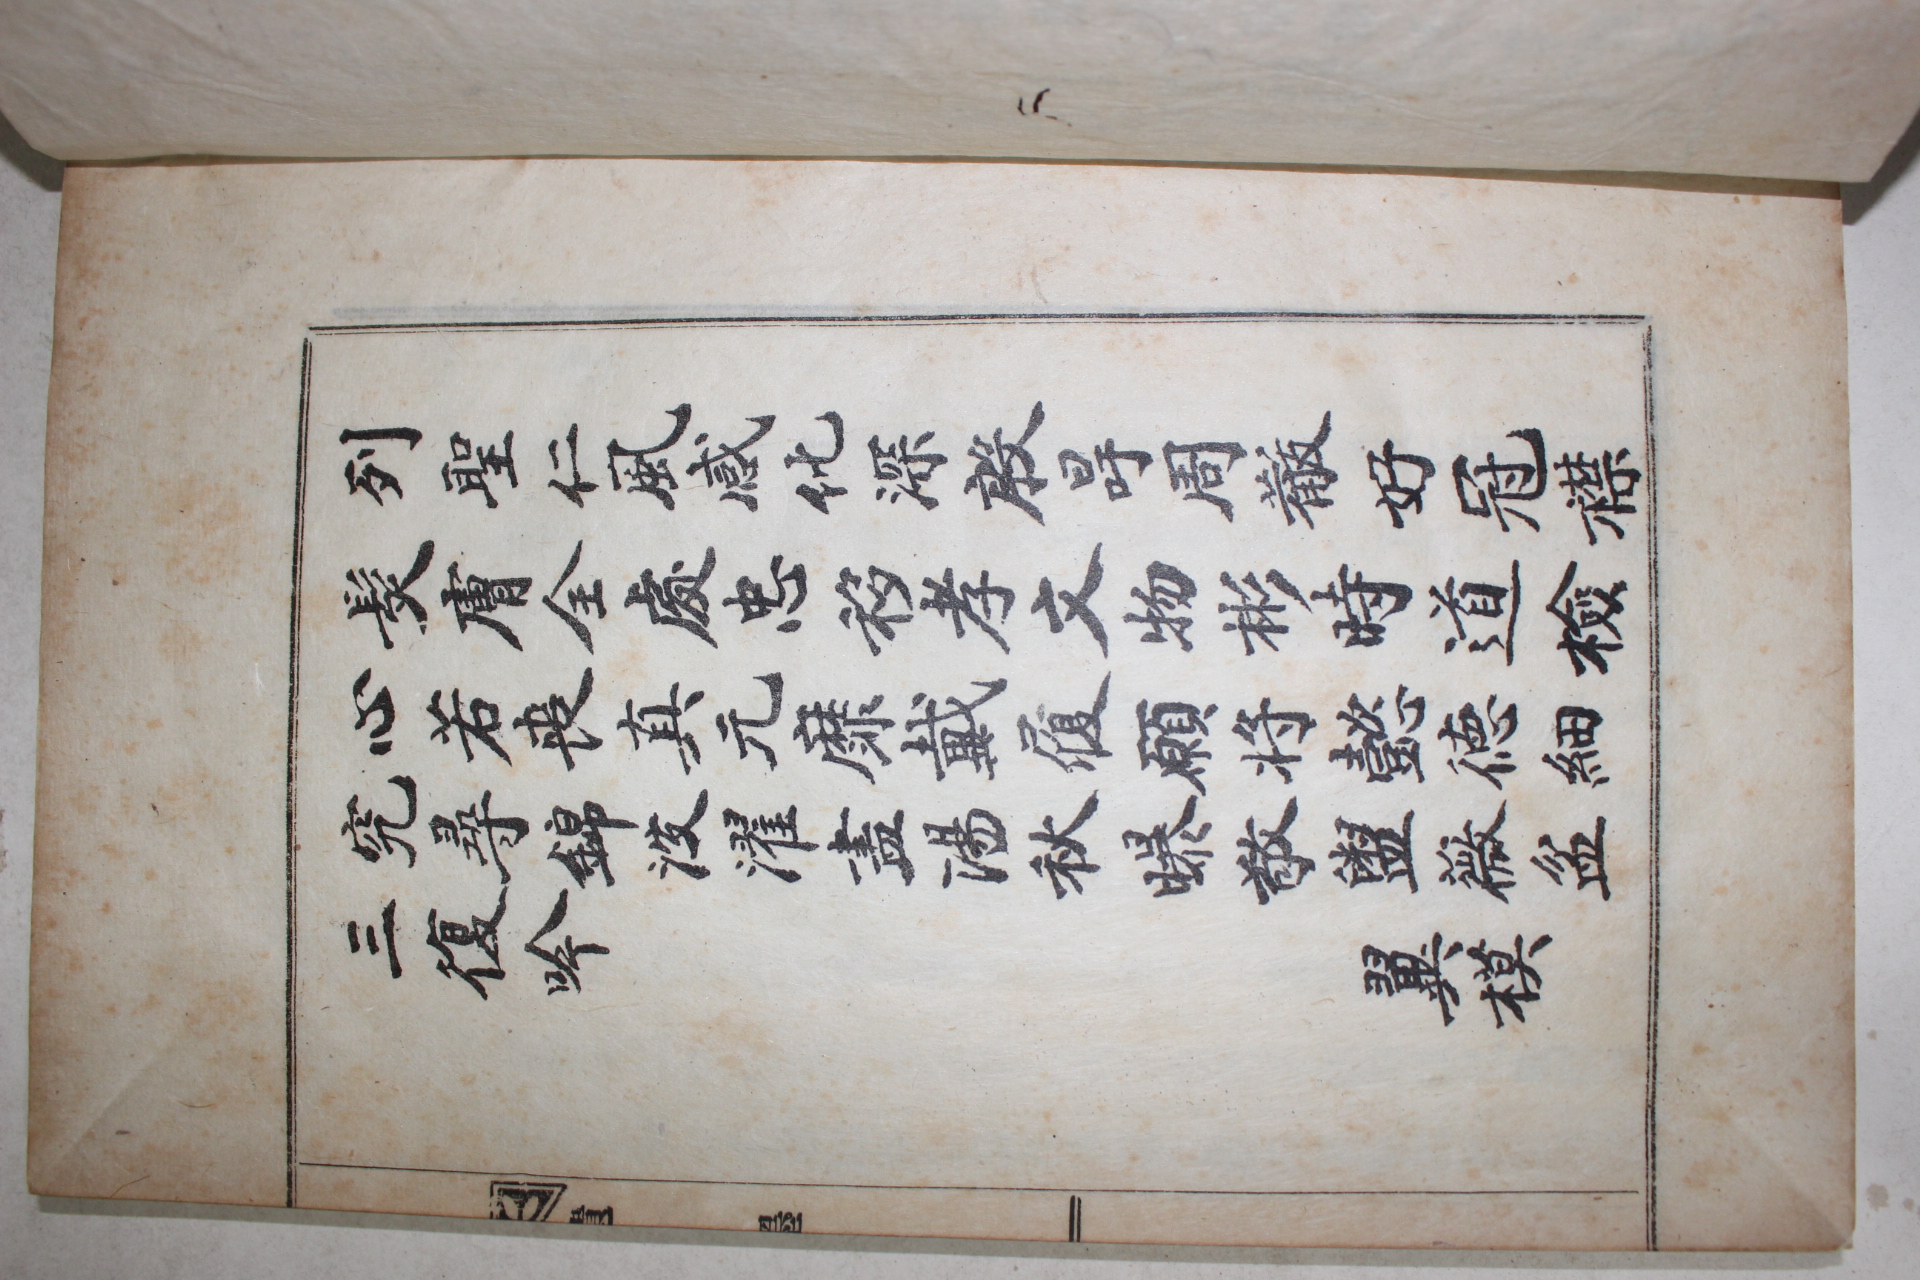 列聖仁風感化深殷冔周黻好冠襟
髮膚全處忠移孝文物彬時道檢
心若喪真元靡戴履願将懿德細
究尋錦波濯盡陽秋曝敬盥薇盆
三復吟
翼模